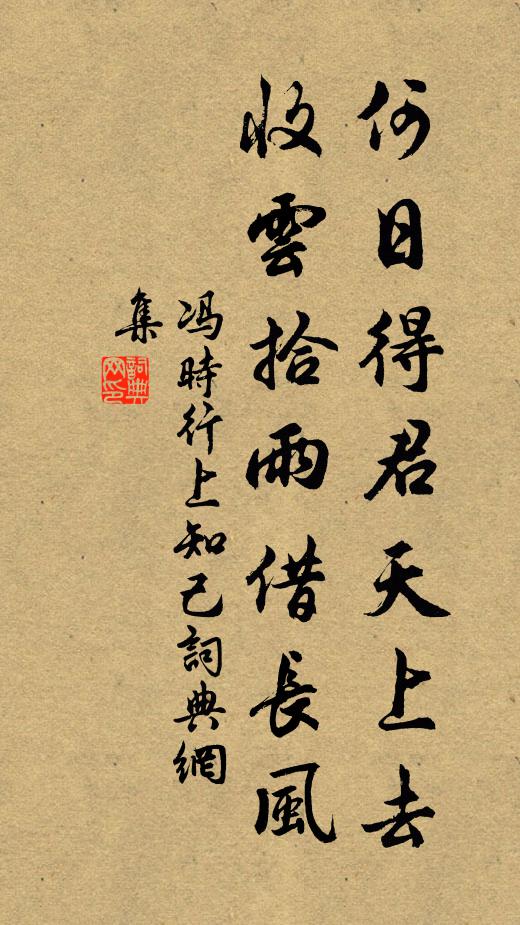 何日得君天上去
收雲拾雨借長風
冯時行上知己詞典網
集
詞典
网印